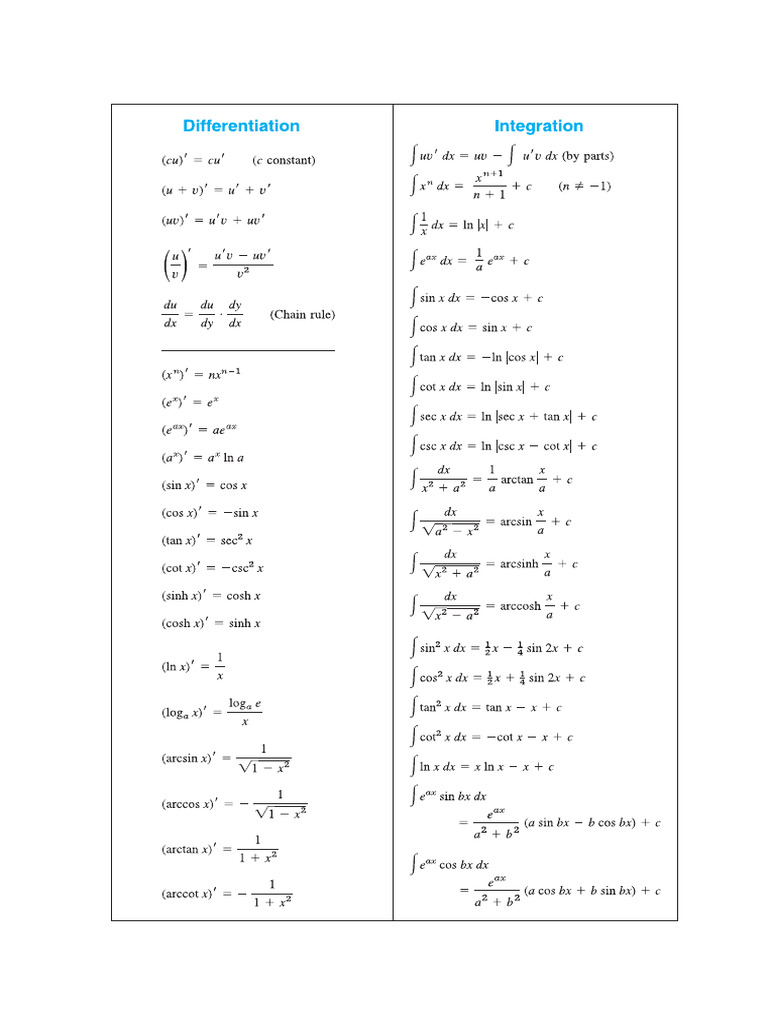 Differentiation
(cu)′ = cu′ (c constant)
(u + v)′ = u′ + v′
(uv)′ = u′v + uv′
(u/v)′ = (u′v − uv′)/v²
du/dx = du/dy · dy/dx (Chain rule)
(xⁿ)′ = nxⁿ⁻¹
(eˣ)′ = eˣ
(eᵃˣ)′ = aeᵃˣ
(aˣ)′ = aˣ ln a
(sin x)′ = cos x
(cos x)′ = −sin x
(tan x)′ = sec² x
(cot x)′ = −csc² x
(sinh x)′ = cosh x
(cosh x)′ = sinh x
(ln x)′ = 1/x
(logₐ x)′ = logₐ e / x
(arcsin x)′ = 1/√(1 − x²)
(arccos x)′ = −1/√(1 − x²)
(arctan x)′ = 1/(1 + x²)
(arccot x)′ = −1/(1 + x²)
Integration
∫ uv′ dx = uv − ∫ u′v dx (by parts)
∫ xⁿ dx = xⁿ⁺¹/(n + 1) + c (n ≠ −1)
∫ 1/x dx = ln |x| + c
∫ eᵃˣ dx = 1/a eᵃˣ + c
∫ sin x dx = −cos x + c
∫ cos x dx = sin x + c
∫ tan x dx = −ln |cos x| + c
∫ cot x dx = ln |sin x| + c
∫ sec x dx = ln |sec x + tan x| + c
∫ csc x dx = ln |csc x − cot x| + c
∫ dx/(x² + a²) = 1/a arctan x/a + c
∫ dx/√(a² − x²) = arcsin x/a + c
∫ dx/√(x² + a²) = arcsinh x/a + c
∫ dx/√(x² − a²) = arccosh x/a + c
∫ sin² x dx = ½x − ¼ sin 2x + c
∫ cos² x dx = ½x + ¼ sin 2x + c
∫ tan² x dx = tan x − x + c
∫ cot² x dx = −cot x − x + c
∫ ln x dx = x ln x − x + c
∫ eᵃˣ sin bx dx
= eᵃˣ/(a² + b²) (a sin bx − b cos bx) + c
∫ eᵃˣ cos bx dx
= eᵃˣ/(a² + b²) (a cos bx + b sin bx) + c